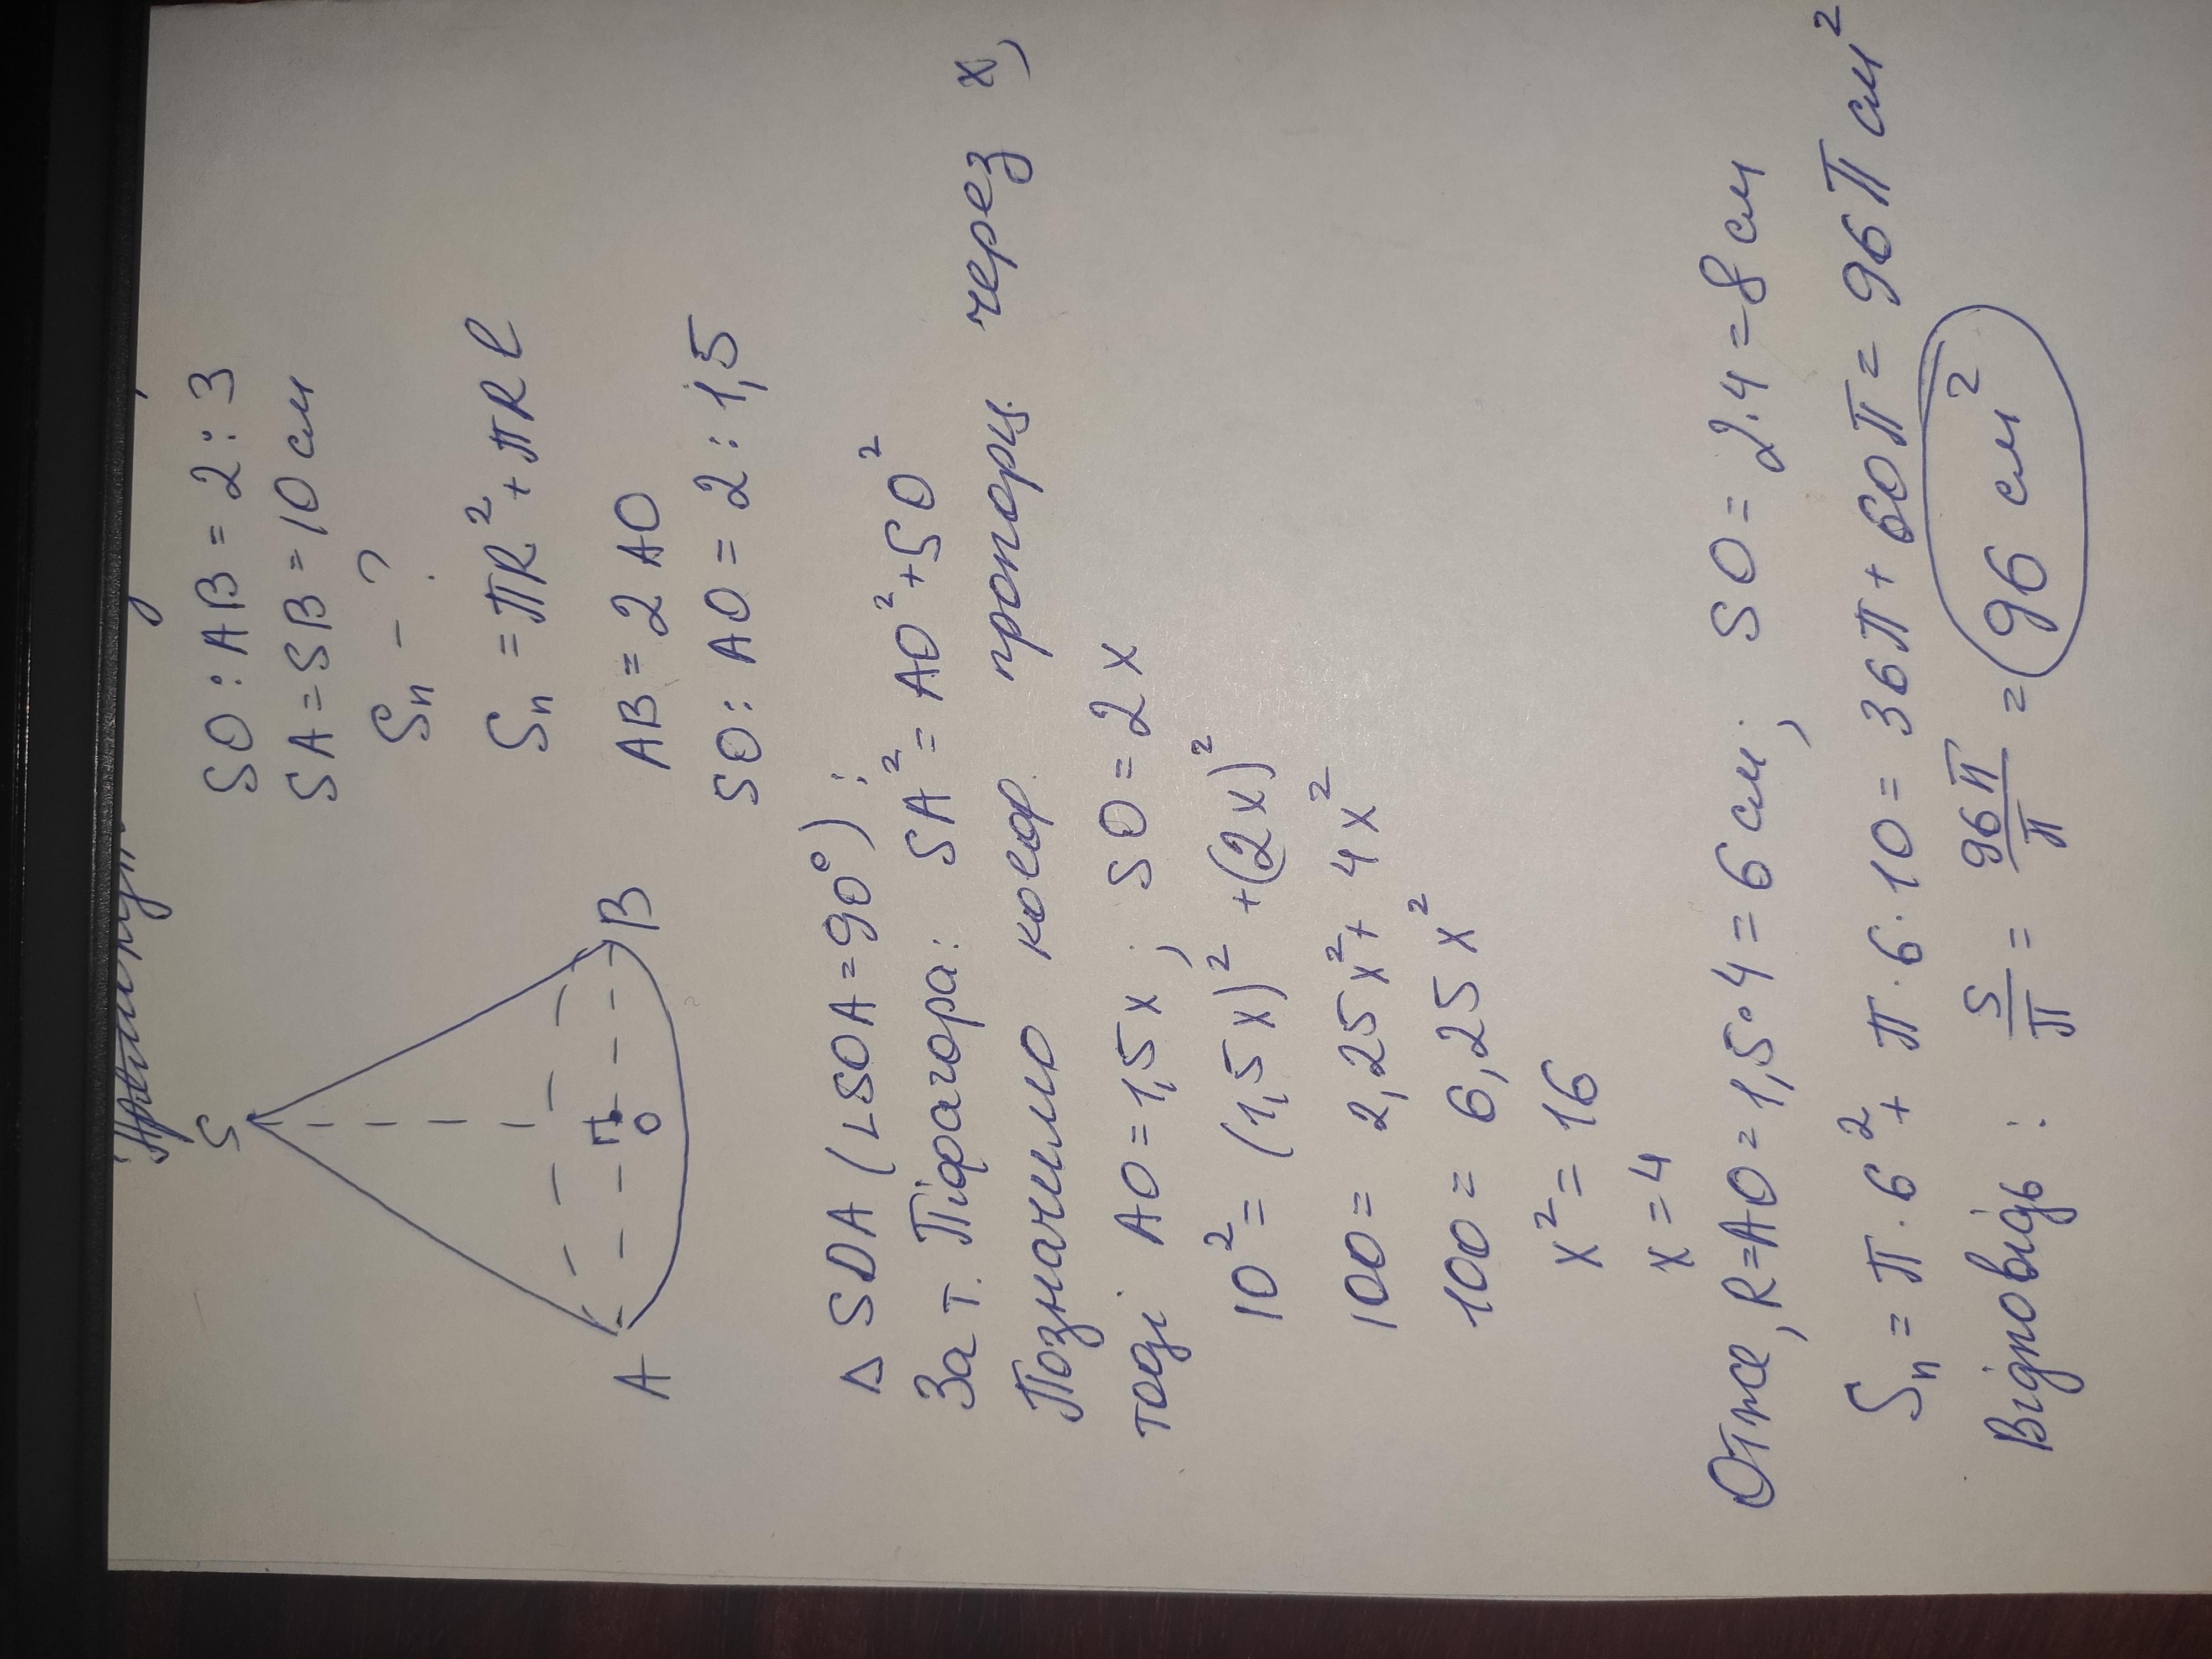 SO : AB = 2 : 3
SA = SB = 10 см
Sп - ?
Sп = πR² + πRl
AB = 2 AO
SO : AO = 2 : 1,5
S
A
B
O
Δ SOA (∠SOA = 90°) :
За т. Піфагора: SA² = AO² + SO²
Позначимо коеф. пропорц. через x,
тоді AO = 1,5x ; SO = 2x
10² = (1,5x)² + (2x)²
100 = 2,25x² + 4x²
100 = 6,25x²
x² = 16
x = 4
Отже, R = AO = 1,5·4 = 6 см; SO = 2·4 = 8 см
Sп = π · 6² + π · 6 · 10 = 36π + 60π = 96π см²
Відповідь : S/π = 96π/π = 96 см²